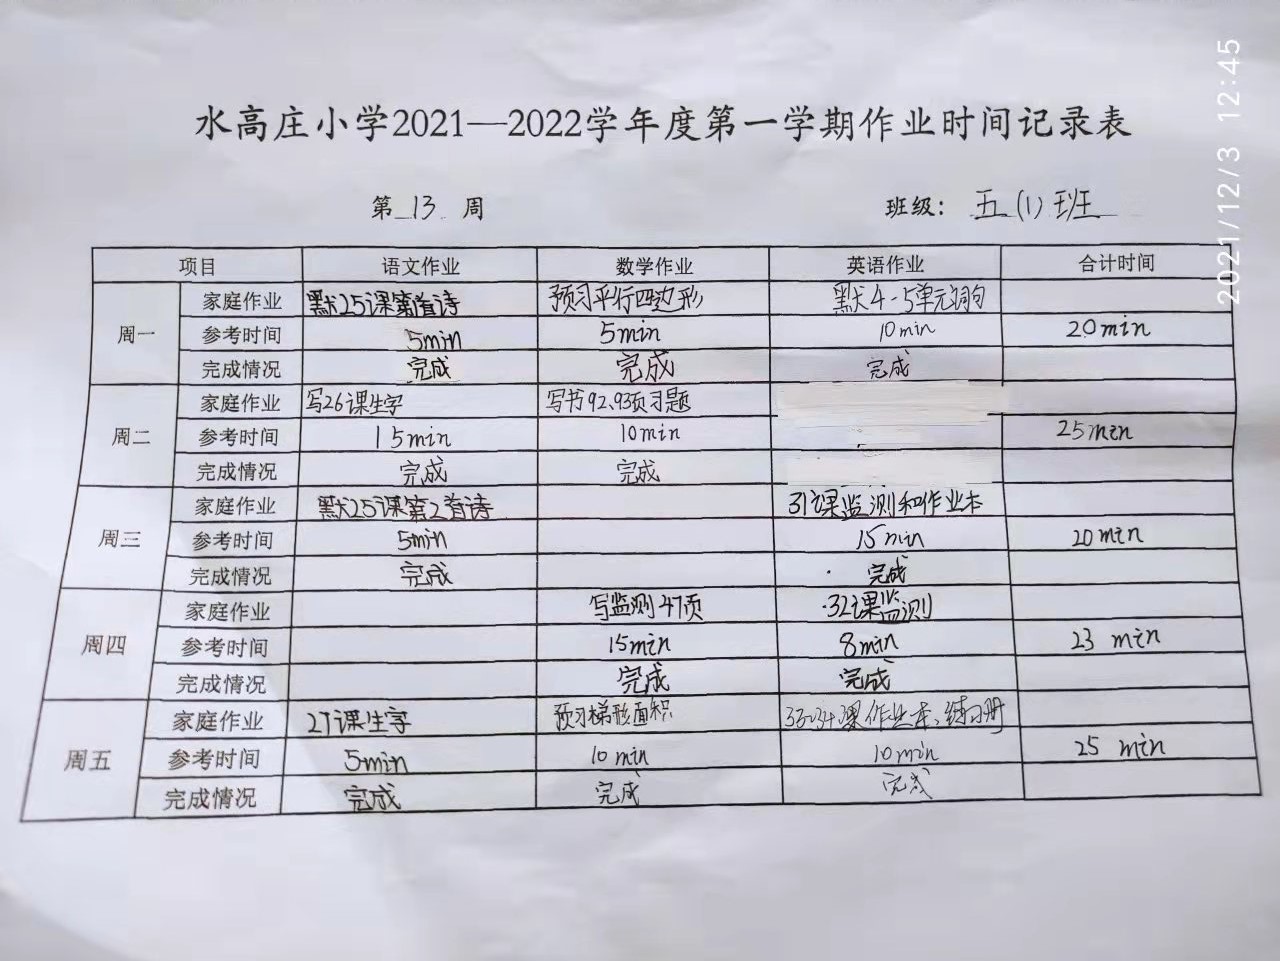 水高庄小学2021—2022学年度第一学期作业时间记录表
第 13 周 班级： 五(1)班
项目 语文作业 数学作业 英语作业 合计时间
周一
家庭作业 默25课第首诗 预习平行四边形 默4-5单元词句
参考时间 5min 5min 10min 20min
完成情况 完成 完成 完成
周二
家庭作业 写26课生字 写书92、93页习题
参考时间 15min 10min 25min
完成情况 完成 完成
周三
家庭作业 默25课第2首诗 31课监测和作业本
参考时间 5min 15min 20min
完成情况 完成 完成
周四
家庭作业 写监测47页 32课监测
参考时间 15min 8min 23 min
完成情况 完成 完成
周五
家庭作业 27课生字 预习梯形面积 33-34课作业本、练习册
参考时间 5min 10 min 10min 25 min
完成情况 完成 完成 完成
2021/12/3 12:45